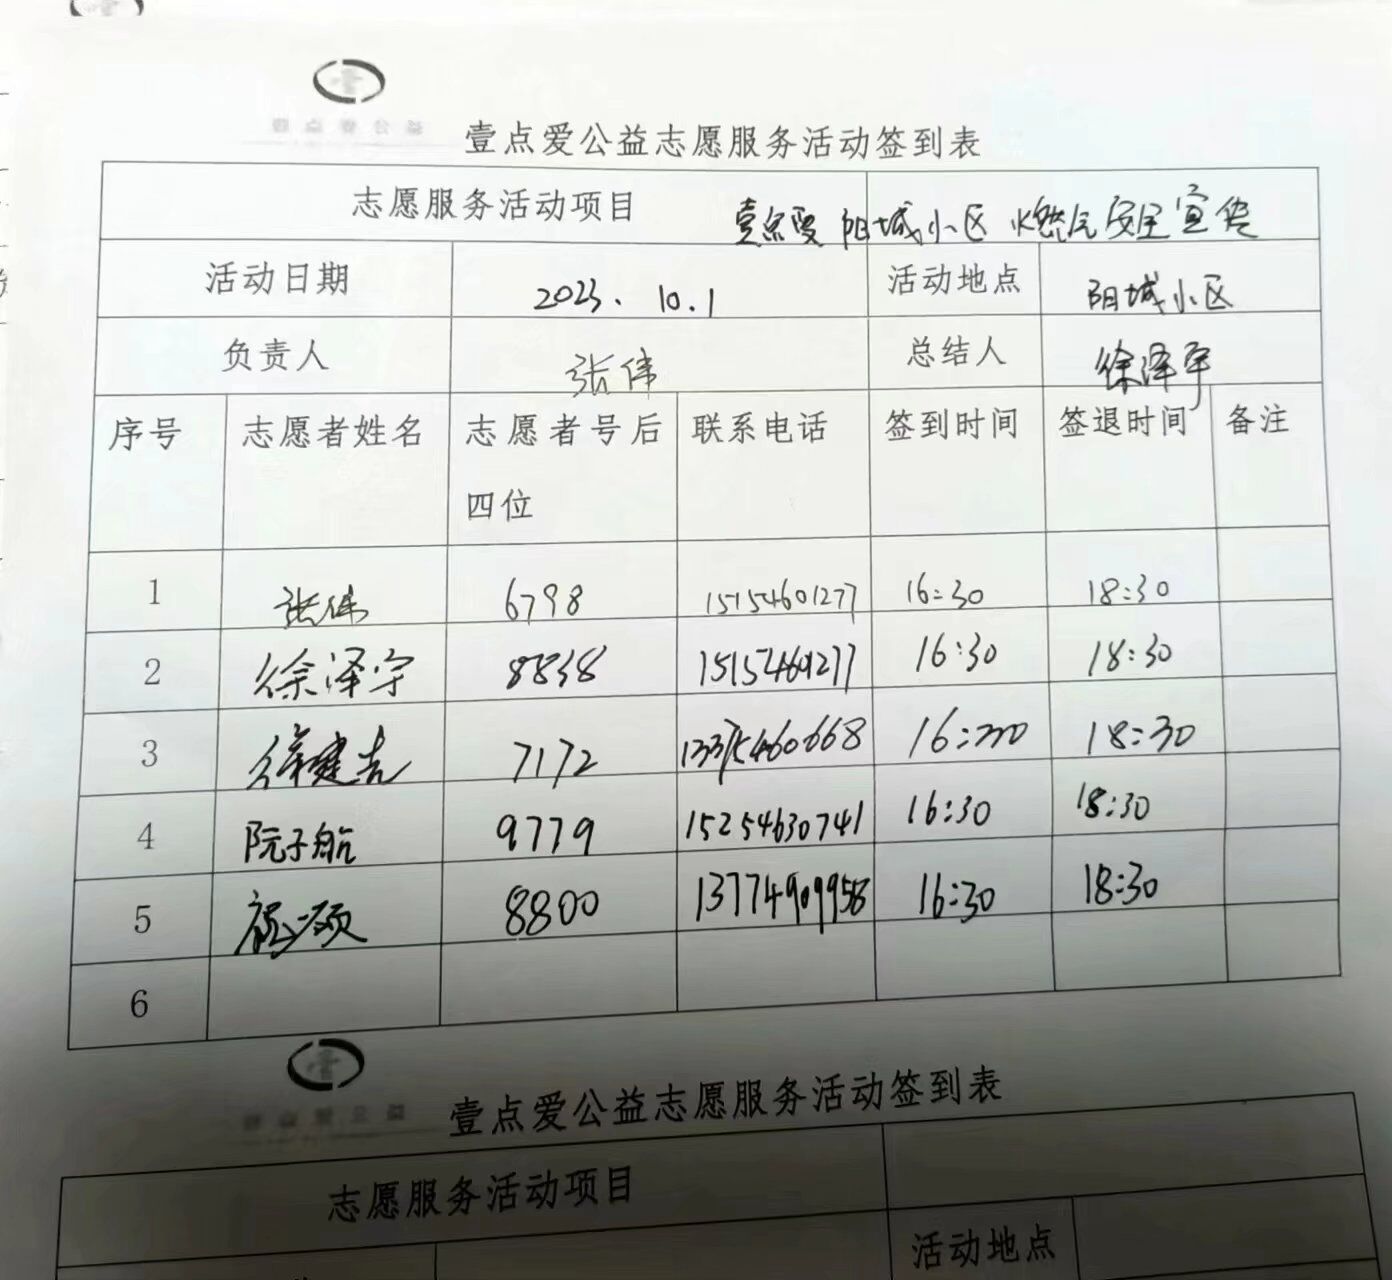 壹点爱公益志愿服务活动签到表
志愿服务活动项目 壹点爱 阳城小区 燃气安全宣传
活动日期 2023. 10.1 活动地点 阳城小区
负责人 张伟 总结人 徐泽宇
序号 志愿者姓名 志愿者号后 联系电话 签到时间 签退时间 备注
四位
1 张伟 6798 15154601277 16:30 18:30
2 徐泽宇 8838 15154601277 16:30 18:30
3 徐建吉 7172 13375460668 16:30 18:30
4 阮子航 9779 15254630741 16:30 18:30
5 8800 16:30 18:30
6
壹点爱公益志愿服务活动签到表
志愿服务活动项目
活动地点